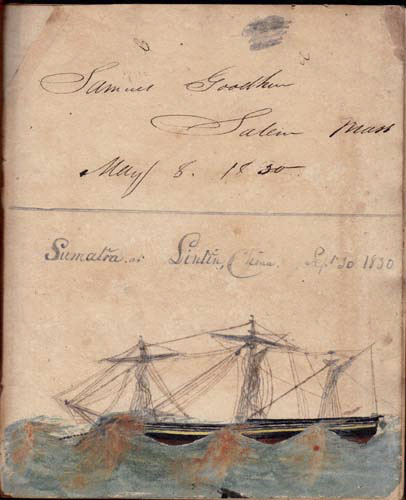 Samuel Goodhue
Salem Mass
May 8. 1830.
Sumatra. at Lintin, China. Sept 30 1830